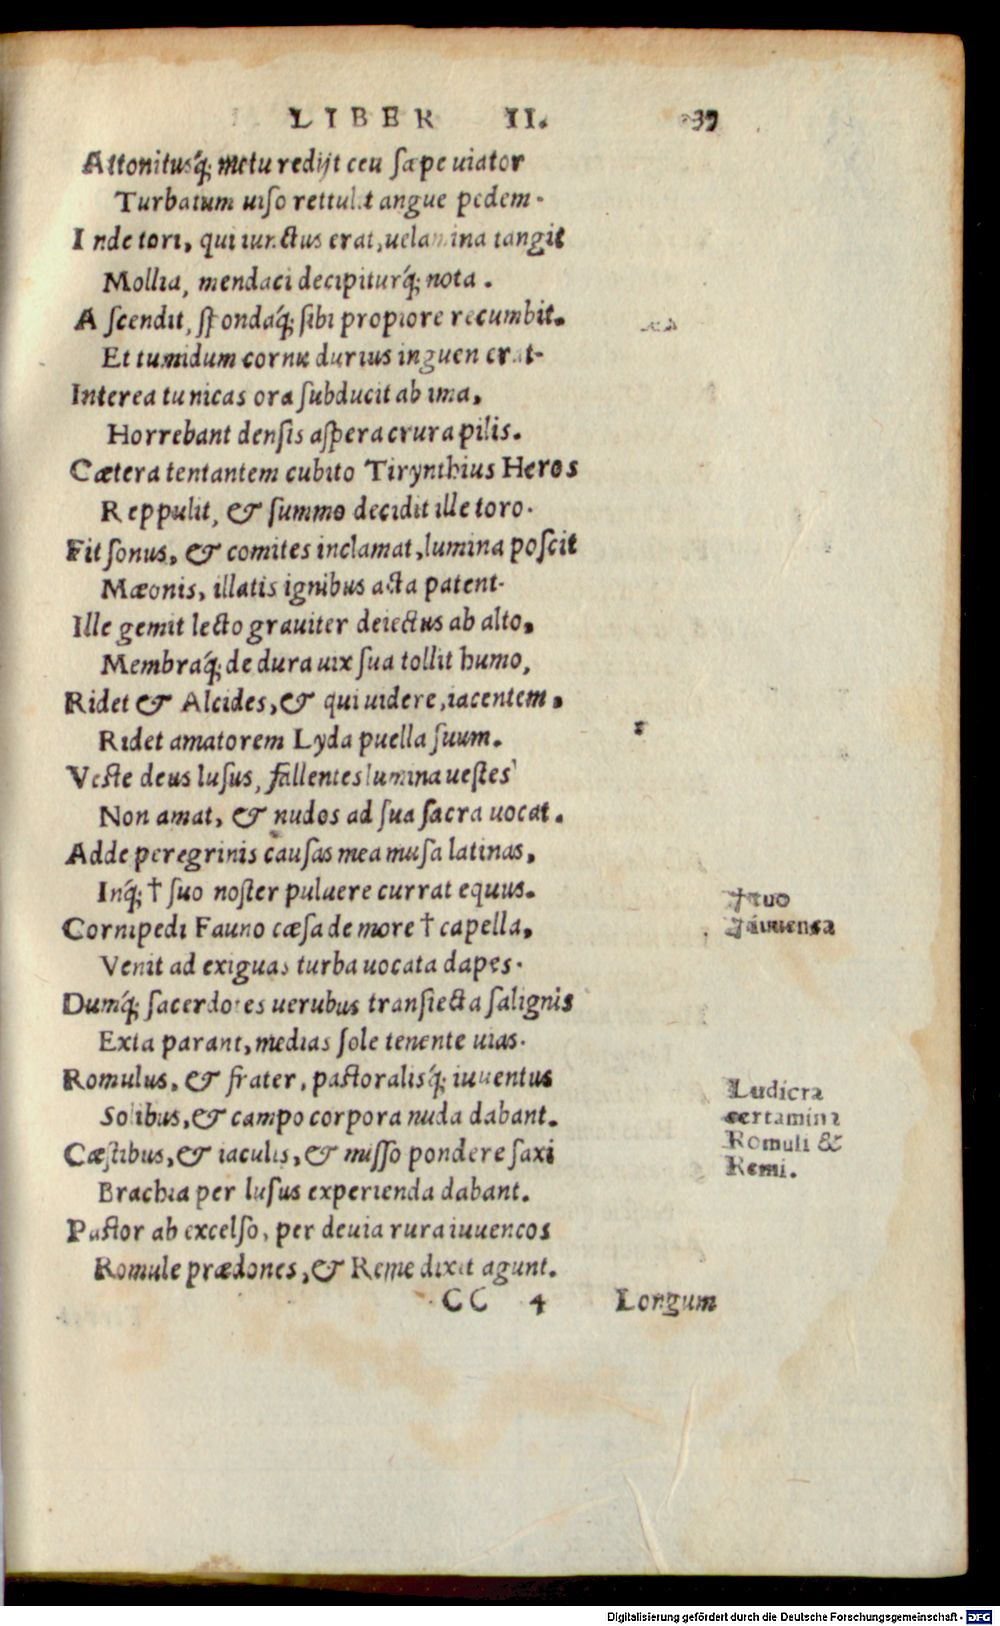 LIBER II. 39
Attonitusq́; metu redijt ceu sæpe uiator
Turbatum uiso rettulit angue pedem.
Inde tori, qui iunctus erat, uelamina tangit
Mollia, mendaci decipiturq́; nota.
Ascendit, spondaq́; sibi propiore recumbit.
Et tumidum cornu durius inguen erat.
Interea tunicas ora subducit ab ima,
Horrebant densis aspera crura pilis.
Cætera tentantem cubito Tirynthius Heros
Reppulit, & summo decidit ille toro.
Fit sonus, & comites inclamat, lumina poscit
Mæonis, illatis ignibus acta patent.
Ille gemit lecto grauiter deiectus ab alto,
Membraq́; de dura uix sua tollit humo,
Ridet & Alcides, & qui uidere, iacentem,
Ridet amatorem Lyda puella suum.
Veste deus lusus, fallentes lumina uestes
Non amat, & nudos ad sua sacra uocat.
Adde peregrinis causas mea musa latinas,
Inq́; † suo noster puluere currat equus.
† tuo
Cornipedi Fauno cæsa de more † capella,
† iuuenca
Venit ad exiguas turba uocata dapes.
Dumq́; sacerdotes uerubus transiecta salignis
Exta parant, medias sole tenente uias.
Romulus, & frater, pastoralisq́; iuuentus
Solibus, & campo corpora nuda dabant.
Cæstibus, & iaculis, & misso pondere saxi
Brachia per lusus experienda dabant.
Ludicra
certamina
Romuli &
Remi.
Pastor ab excelso, per deuia rura iuuencos
Romule prædones, & Reme dixit agunt.
CC 4 Longum
Digitalisierung gefördert durch die Deutsche Forschungsgemeinschaft - DFG